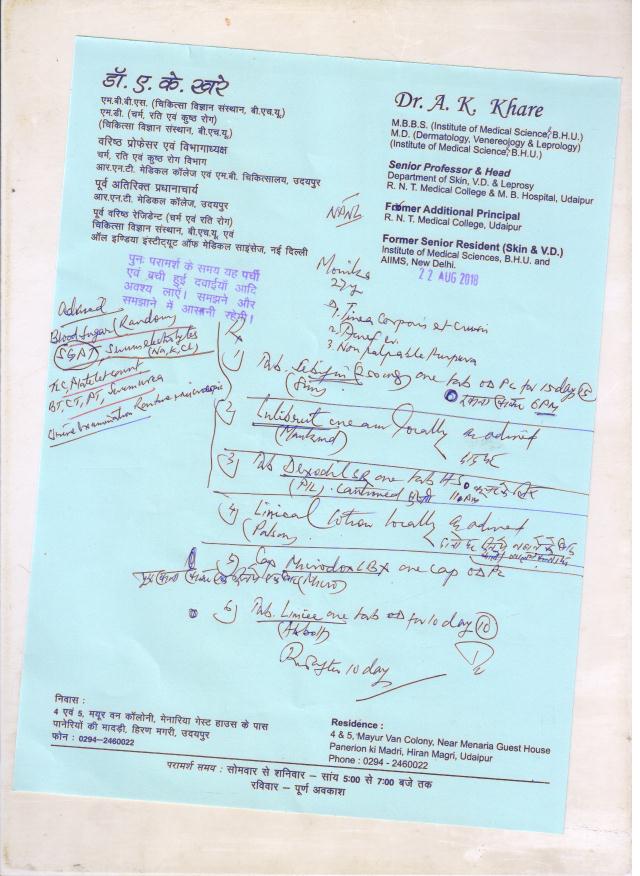 डॉ. ए. के. खरे
एम.बी.बी.एस. (चिकित्सा विज्ञान संस्थान, बी.एच.यू.)
एम.डी. (चर्म, रति एवं कुष्ठ रोग)
(चिकित्सा विज्ञान संस्थान, बी.एच.यू.)
वरिष्ठ प्रोफेसर एवं विभागाध्यक्ष
चर्म, रति एवं कुष्ठ रोग विभाग
आर.एन.टी. मेडिकल कॉलेज एवं एम.बी. चिकित्सालय, उदयपुर
पूर्व अतिरिक्त प्रधानाचार्य
आर.एन.टी. मेडिकल कॉलेज, उदयपुर
पूर्व वरिष्ठ रेजिडेंट (चर्म एवं रति रोग)
चिकित्सा विज्ञान संस्थान, बी.एच.यू. एवं
ऑल इण्डिया इंस्टीट्यूट ऑफ मेडिकल साइंसेज, नई दिल्ली
Dr. A. K. Khare
M.B.B.S. (Institute of Medical Science, B.H.U.)
M.D. (Dermatology, Venereology & Leprology)
(Institute of Medical Science, B.H.U.)
Senior Professor & Head
Department of Skin, V.D. & Leprosy
R. N. T. Medical College & M. B. Hospital, Udaipur
Former Additional Principal
R. N. T. Medical College, Udaipur
Former Senior Resident (Skin & V.D.)
Institute of Medical Sciences, B.H.U. and
AIIMS, New Delhi.
22 AUG 2018
पुनः परामर्श के समय यह पर्ची
एवं बची हुई दवाईयाँ आदि
अवश्य लाएं। समझने और
समझाने में आसानी रहेगी।
Monika
27y
1. Tinea Corporis et Cruris
3. Non palpable Purpura
Advised
Blood Sugar (Random)
SGPT, Serum electolytes
(Na, K, Cl)
TLC, Platelet count
BT, CT, PT, Serum urea
Urine Examination Routine microscopic
Rx
1) Tab. one tab OD PC for 15 day 15
6 PM
2) one locally as advised
(Mankind)
3) Tab SR one tab HS
11 PM
4) lotion locally as advised
5) Cap Microdox LBX one cap OD PC
(Micro)
6) Tab. Limcee one tab OD for 10 day 10
(Abbott)
after 10 day
निवास :
4 एवं 5, मयूर वन कॉलोनी, मेनारिया गेस्ट हाउस के पास
पानेरियों की मादड़ी, हिरण मगरी, उदयपुर
फोन : 0294-2460022
Residence :
4 & 5, Mayur Van Colony, Near Menaria Guest House
Panerion ki Madri, Hiran Magri, Udaipur
Phone : 0294 - 2460022
परामर्श समय : सोमवार से शनिवार – सांय 5:00 से 7:00 बजे तक
रविवार – पूर्ण अवकाश